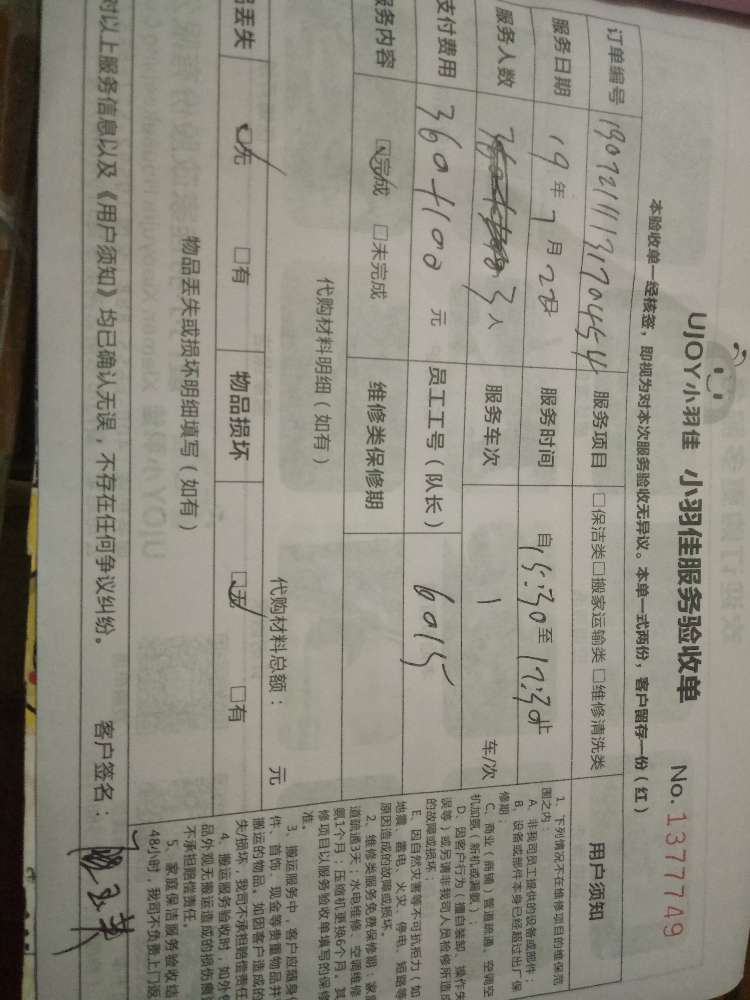 UJOY小羽佳 小羽佳服务验收单 No.1377749
本验收单一经核签，即视为对本次服务验收无异议。本单一式两份，客户留存一份（红）
订单编号 服务项目 □保洁类□搬家运输类 □维修清洗类
服务日期 19年7月22日 服务时间 自15:30至17:30止
服务人数 3人 服务车次 1 车/次
支付费用 360+100 元 员工工号（队长） 6015
服务内容 □完成 □未完成 维修类保修期
代购材料明细（如有） 代购材料总额： 元
丢失 □无 □有 物品损坏 □无 □有
物品丢失或损坏明细填写（如有）
对以上服务信息以及《用户须知》均已确认无误，不存在任何争议纠纷。 客户签名：
用户须知
1、下列情况不在维修项目的维保范
围之内：
A、非我司员工提供的设备或部件；
B、设备或部件本身已经超过出厂保
修期；
C、商业（商铺）管道疏通、空调空
机加氨（新机或漏氨）；
D、因客户行为（擅自装卸、操作失
误等）或另请非我司人员检修所造成
的故障或损坏；
E、因自然灾害等不可抗拒力（如
地震、雷电、火灾、停电、短路等
原因造成的故障或损坏。
2、维修类服务免费保修期：家庭
道疏通3天；水电维修、空调维修
氨1个月；压缩机更换6个月。其
修项目以服务验收单填写的保修
准。
3、搬运服务中，客户应随身
件、首饰、现金等贵重物品并
搬运的物品。如因客户造成的
失/损坏，我司不承担赔偿责任
4、搬运服务验收时，如外
品外观无搬运造成的损伤
不承担赔偿责任。
5、家庭保洁服务验收结
48小时，我司不负责上门返